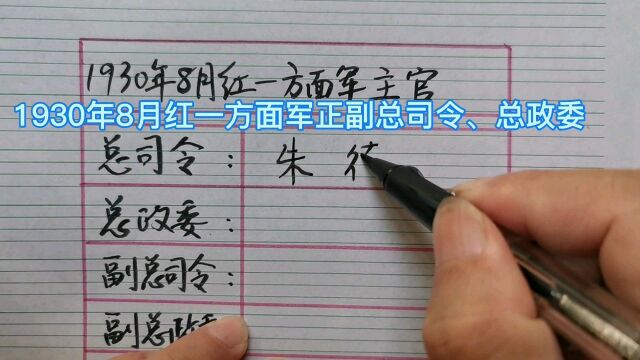 1930年8月红一方面军主官
1930年8月红一方面军正副总司令、总政委
总司令：朱
总政委：
副总司令：
副总政